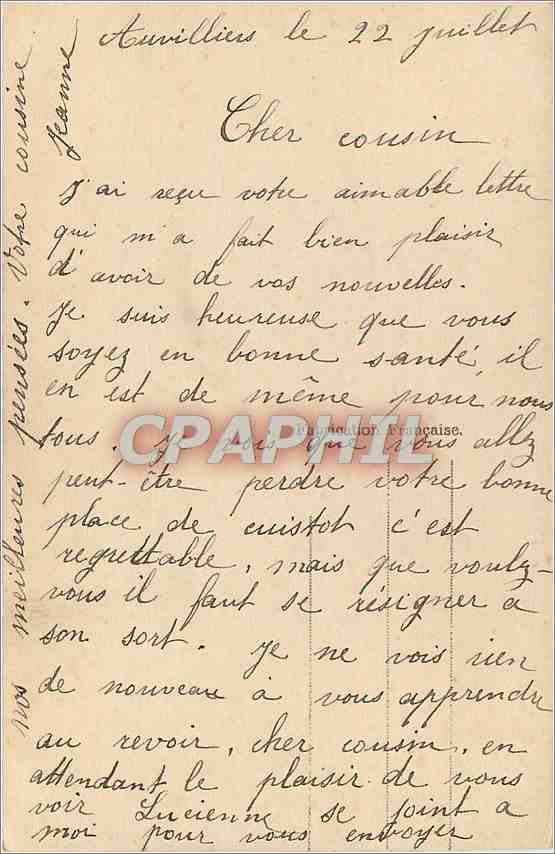 Auvilliers le 22 juillet
Cher cousin
J'ai reçu votre aimable lettre
qui m'a fait bien plaisir
d'avoir de vos nouvelles.
Je suis heureuse que vous
soyez en bonne santé, il
en est de même pour nous
tous. je vois que vous allez
peut-être perdre votre bonne
place de cuistot c'est
regrettable, mais que voulez-
vous il faut se résigner à
son sort. Je ne vois rien
de nouveau à vous apprendre
au revoir, cher cousin, en
attendant le plaisir de vous
voir Lucienne se joint a
moi pour vous envoyer
nos meilleures pensées. Votre cousine
Jeanne
Fabrication Française.
CPAPHIL